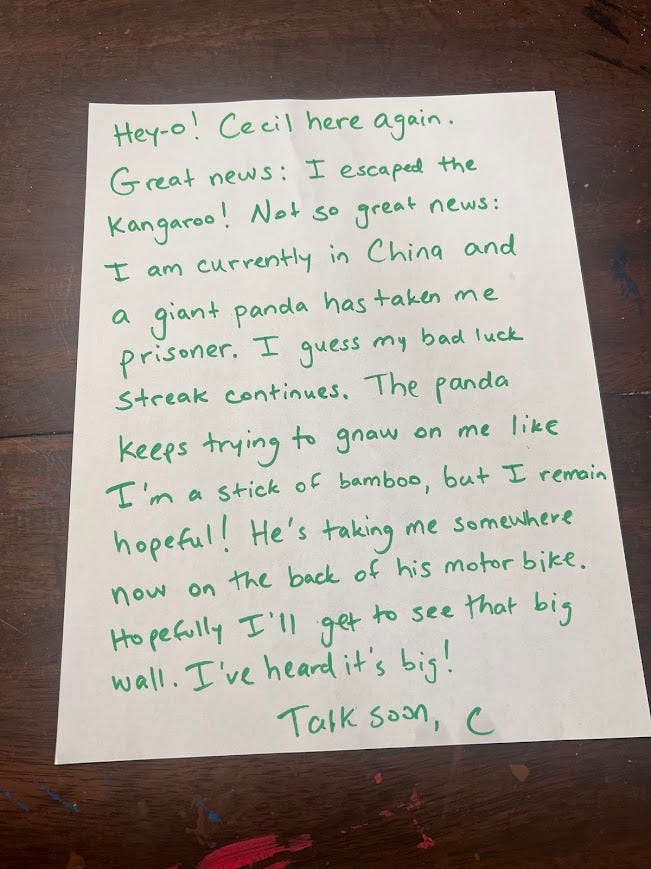 Hey-o! Cecil here again.
Great news: I escaped the
Kangaroo! Not so great news:
I am currently in China and
a giant panda has taken me
prisoner. I guess my bad luck
streak continues. The panda
keeps trying to gnaw on me like
I'm a stick of bamboo, but I remain
hopeful! He's taking me somewhere
now on the back of his motor bike.
Hopefully I'll get to see that big
wall. I've heard it's big!
Talk soon, C